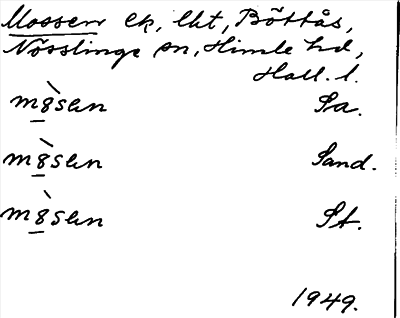 Mossen ek, lht, Böttås,
Nösslinge sn, Himle hd,
Hall. l.
m8̀sen Sa.
m8̀sen Sand.
m8̀sen St.
1949.